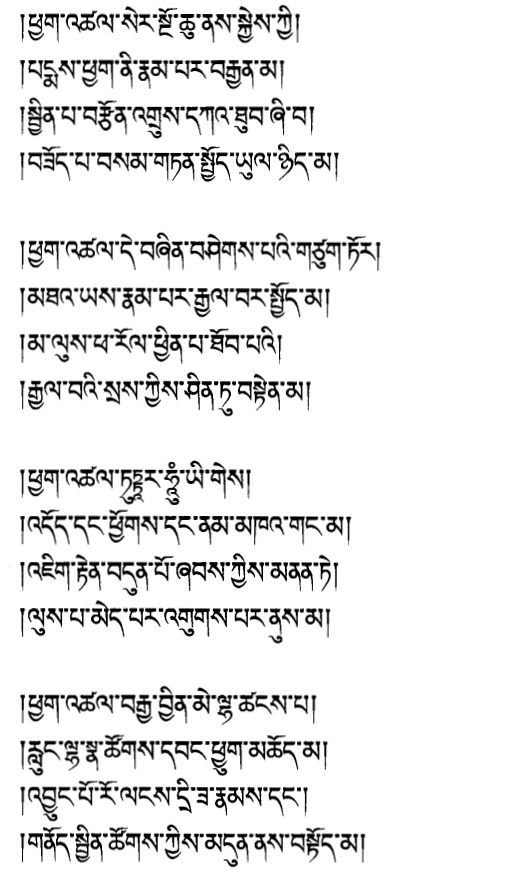 །ཕྱག་འཚལ་སེར་སྔོ་ཆུ་ནས་སྐྱེས་ཀྱི།
།པདྨས་ཕྱག་ནི་རྣམ་པར་བརྒྱན་མ།
།སྦྱིན་པ་བརྩོན་འགྲུས་དཀའ་ཐུབ་ཞི་བ།
།བཟོད་པ་བསམ་གཏན་སྤྱོད་ཡུལ་ཉིད་མ།
།ཕྱག་འཚལ་དེ་བཞིན་བཤེགས་པའི་གཙུག་ཏོར།
།མཐའ་ཡས་རྣམ་པར་རྒྱལ་བར་སྤྱོད་མ།
།མ་ལུས་ཕ་རོལ་ཕྱིན་པ་ཐོབ་པའི།
།རྒྱལ་བའི་སྲས་ཀྱིས་ཤིན་ཏུ་བསྟེན་མ།
།ཕྱག་འཚལ་ཏུཏྟཱར་ཧཱུྃ་ཡི་གེས།
།འདོད་དང་ཕྱོགས་དང་ནམ་མཁའ་གང་མ།
།འཇིག་རྟེན་བདུན་པོ་ཞབས་ཀྱིས་མནན་ཏེ།
།ལུས་པ་མེད་པར་འགུགས་པར་ནུས་མ།
།ཕྱག་འཚལ་བརྒྱ་བྱིན་མེ་ལྷ་ཚངས་པ།
།རླུང་ལྷ་སྣ་ཚོགས་དབང་ཕྱུག་མཆོད་མ།
།འབྱུང་པོ་རོ་ལངས་དྲི་ཟ་རྣམས་དང་།
།གནོད་སྦྱིན་ཚོགས་ཀྱིས་མདུན་ནས་བསྟོད་མ།